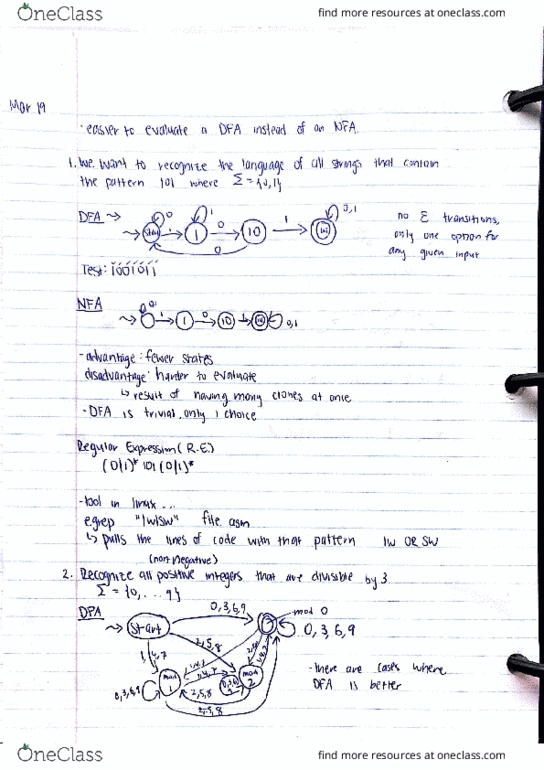 OneClass
find more resources at oneclass.com
Mar 19
· easier to evaluate a DFA instead of an NFA.
1. We want to recognize the language of all strings that contain
the pattern 101 where Σ = {0,1}
DFA
0
1
0,1
start
1
1
0
10
1
101
0
no ε transitions,
only one option for
any given input
Test: 1001011
NFA
0,1
1
1
0
10
1
101
0,1
- advantage: fewer states
disadvantage: harder to evaluate
↳ result of having many clones at once
- DFA is trivial, only 1 choice
Regular Expression (R.E.)
(0|1)* 101 (0|1)*
- tool in linux ...
egrep "lw|sw" file.asm
↳ pulls the lines of code with that pattern lw OR sw
(non negative)
2. Recognize all positive integers that are divisible by 3.
Σ = {0,...9}
DFA
start
0,3,6,9
mod 0
0,3,6,9
2,5,8
1,4,7
mod
1
mod
2
0,3,6,9
2,5,8
2,5,8
- there are cases where
DFA is better
OneClass
find more resources at oneclass.com